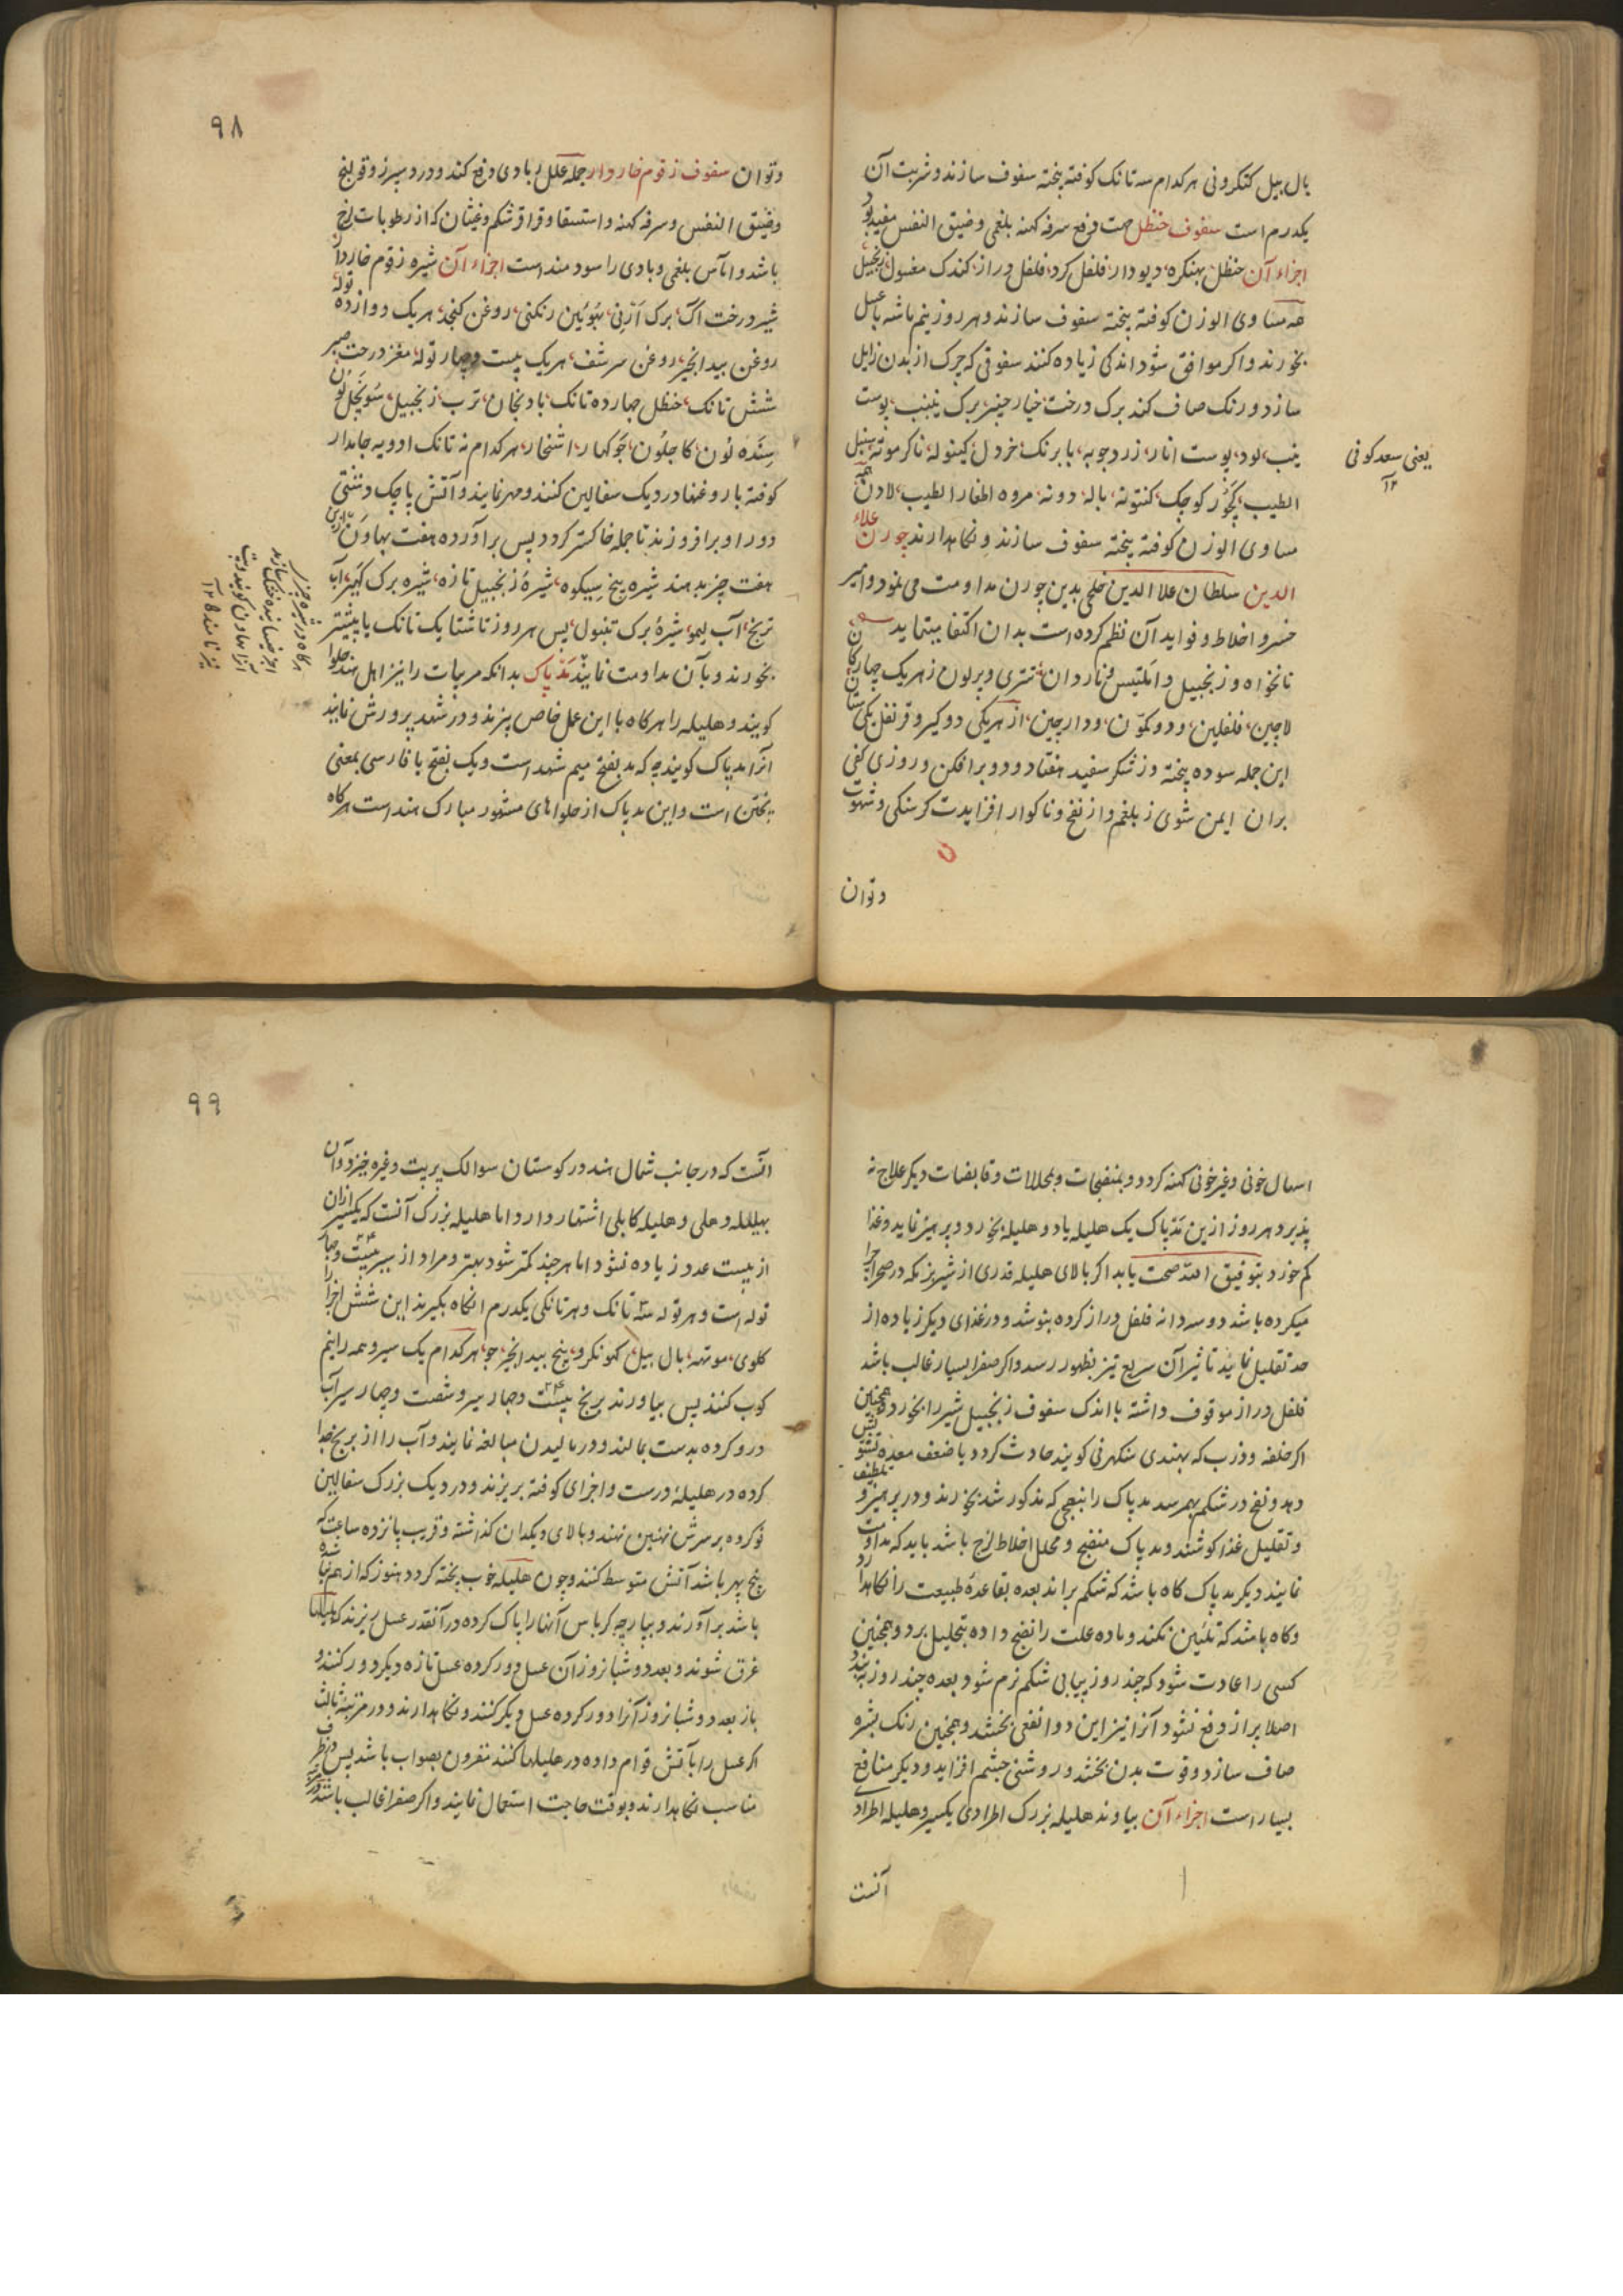 بال بیل کتکرونی هر کدام سه تانک کوفته بیخته سفوف سازند و شربت آن
یکدرم است سفوف حنظل جهت دفع سرفه کهنه بلغمی و ضیق النفس مفید بود
اجزاء آن حنظل بهنکره، دیودار، فلفل کرد، فلفل دراز، کندک مغسول، زنجبیل
همه مساوی الوزن کوفته بیخته سفوف سازند و هر روز نیم ماشه با عسل
بخورند و اکر موافق شود اندکی زیاده کنند سفوفی که چرک از بدن زایل
سازد و رنک صاف کند برک درخت خیار چنبر، برک ینب، پوست
ینب، لود، پوست انار، زردچوبه، بابرنک، خردل، کیتوله، ناکرموته، سنبل
الطیب، کچور کوچک، کنتونه، باله، دونه، مروه، اظفار الطیب، لادن همه
مساوی الوزن کوفته بیخته سفوف سازند و نکاهدارند چورن علاء
الدین سلطان علاالدین خلجی بدین چورن مداومت می نمود و امیر
خسرو اخلاط و فواید آن نظم کرده است بدان اکتفا بنماید
نانخواه و زنجبیل و املتیس و ناردان تتری و بر لون ز هریک چهار
لاچین، فلفلین، و دو کمون، و دارچین، از هریکی دو کیر و قرنفل یکی ستان
این جمله سوده بیخته و ز شکر سفید هفتاد و دو بر افکن و روزی کفی
بران ایمن شوی ز بلغم و از نفخ و ناکوار افزایدت کرسنکی و شهوت
وتوان
یعنی سعد کوفی
۱۲
۹۸
وتوان سفوف زقوم خاردار جمله علل بادی دفع کند و درد سپرز و قولنج
وضیق النفس و سرفه کهنه و استسقا و قراقر شکم و غثیان که از رطوبات لزج
باشد و آماس بلغمی و بادی را سودمند است اجزاء آن شیره زقوم خاردار
شیر درخت آک، برک آرنی، بهوئین رنکنی، روغن کنجد، هریک دوازده توله
روغن بیدانجیر، روغن سرشف، هریک بیست و چهار توله، مغز درخت صبر
شش تانک، حنظل چهارده تانک، بادنجان، ترب، زنجبیل، سونچل لون
سینده لون، کاچلون، جوکهار، اشخار، هر کدام نه تانک ادویه جامدار
کوفته با روغنها در دیک سفالین کنند و مهر نمایند و آتش پاچک دشتی
دور او برافروزند تا جمله خاکستر کردد پس برآورده هفت بهاون ازین
هفت چیز بدهند شیره بیخ سیکوه، شیره زنجبیل تازه، شیره برک کهیر، آب
ترنج، آب لیمو، شیره برک تنبول، پس هر روز ناشتا یک تانک یا بیشتر
بخورند و بآن مداومت نمایند مد پاک بدانکه مربیات را نیز اهل هند حلوا
کویند و هلیله را هرکاه با این عمل خاص بپزند و در شهد پرورش نمایند
آنرا مد پاک کویند چه که مد بفتح میم شهد است و پک بفتح با فارسی بمعنی
پختن است و این مد پاک از حلواهای مشهور مبارک هند است هرکاه
اسهال خونی و غیر خونی کهنه کردد و بمنضجات و بمحللات و قابضات دیکر علاج نه
پذیرد هر روز ازین مد پاک یک هلیله یا دو هلیله بخورد و پرهیز نماید و غذا
کم خورد بتوفیق الله صحت یابد اکر بالای هلیله قدری از شیر بز که در صحرا چرا
میکرده باشد دو سه دانه فلفل دراز کرده بنوشد و در غذای دیکر زیاده از
حد تقلیل نماید تاثیر آن سریع تیز بظهور رسد و اکر صفرا بسیار غالب باشد
فلفل دراز موقوف داشته با اندک سفوف زنجبیل شیر را بخورد و همچنین
اکر خلفه و ذرب که بهندی سنکهرنی کویند حادث کردد یا ضعف معده تشویش
دهد و نفخ در شکم بهم رسد مد پاک را بنهجی که مذکور شد بخورند و در پرهیز و تلطیف
و تقلیل غذا کوشند و مد پاک منضج و محلل اخلاط لزج باشد باید که مداومت
نمایند دیکر مد پاک کاه باشد که شکم براند بعده بقاعده طبیعت را نکاه دارد
و کاه باشد که تلئین نکند و ماده علت را نضج داده بتحلیل برد و همچنین
کسی را عادت شود که چند روز پیاپی شکم نرم شود بعده چند روز به بندد
اصلا براز دفع نشود آنرا نیز این دوا نفعی بخشد و همچنین رنک بشره
صاف سازد و قوت بدن بخشد و روشنی چشم افزاید و دیکر منافع
بسیار است اجزاء آن بیاوند هلیله بزرک اطرادی یکسیر و هلیله اطرادی
آنست
۹۹
آنست که در جانب شمال هند در کوستان سوالک پربت وغیره خیزد و آن
بهلیله و هلی و هلیله کابلی اشتهار دارد اما هلیله بزرک آنست که یکسیر ازان
از بیست عدد زیاده نشود اما هر چند کمتر شود بهتر و مراد از سیر بیست و چهار
توله است و هر توله سه تانک و هر تانکی یکدرم انکاه بکیرند این شش اجزا را
کلوی، موتهه، بال بیل، کهونکرو، بیخ بیدانجیر، جو، هر کدام یک سیر و همه را نیم
کوب کنند پس بیاورند برنج بیست و چهار سیر و شصت و چهار سیر آب
درو کرده بدست بمالند و در مالیدن مبالغه نمایند و آب را از برنج جدا
کرده در هلیله درست و اجزای کوفته بریزند و در دیک بزرک سفالین
فرو کرده بر سرش نهنبن نهند و بالای دیکدان کذاشته و قریب پانزده ساعت که
پنج پهر باشد آتش متوسط کنند و چون هلیله خوب پخته کردد هنوز که از هم نپاشیده
باشد برآورند و بپارچه کرباس آنها را پاک کرده در آنقدر عسل ریزند که هلیلها
غرق شوند و بعد دو شبانروز آن عسل دور کرده عسل تازه دیکر دور کنند و
باز بعد دو شبانروز آنرا دور کرده عسل دیکر کنند و نکاهدارند و در مرتبه ثالث
اکر عسل را بآتش قوام داده در هلیلها کنند مقرون بصواب باشد پس در ظرف
مناسب نکاهدارند و بوقت حاجت استعمال نمایند و اکر صفرا غالب باشد